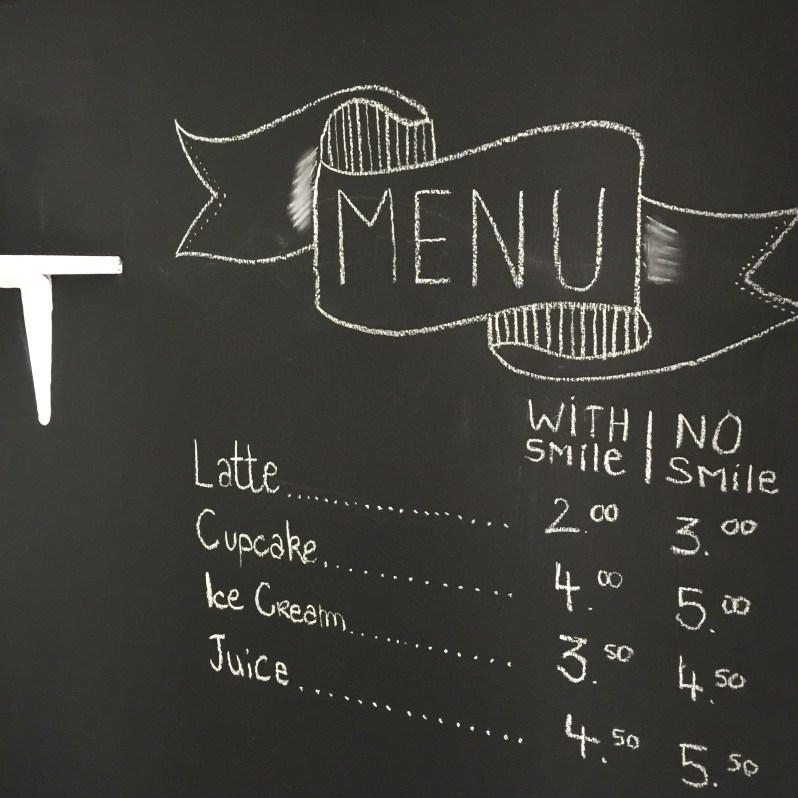 T
MENU
WiTH SMile | NO SMile
Latte 2.00 3.00
Cupcake 4.00 5.00
Ice Cream 3.50 4.50
Juice 4.50 5.50